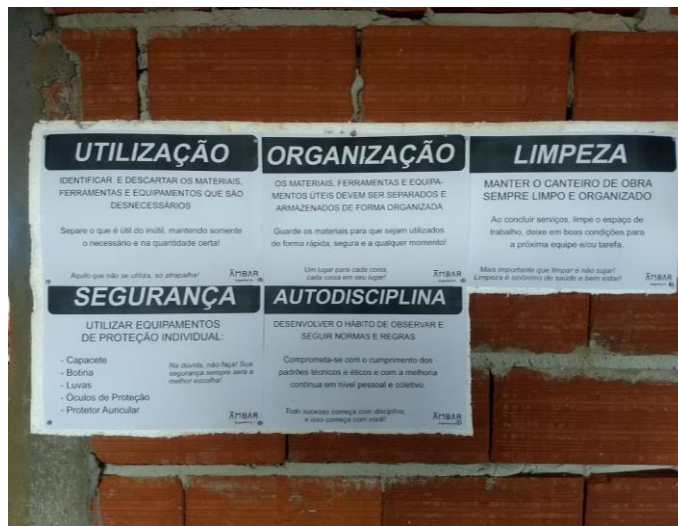 UTILIZAÇÃO
IDENTIFICAR E DESCARTAR OS MATERIAIS,
FERRAMENTAS E EQUIPAMENTOS QUE SÃO
DESNECESSÁRIOS
Separe o que é útil do inútil, mantendo somente
o necessário e na quantidade certa!
Aquilo que não se utiliza, só atrapalha!
ÂMBAR
ORGANIZAÇÃO
OS MATERIAIS, FERRAMENTAS E EQUIPA-
MENTOS ÚTEIS DEVEM SER SEPARADOS E
ARMAZENADOS DE FORMA ORGANIZADA
Guarde os materiais para que sejam utilizados
de forma rápida, segura e a qualquer momento!
Um lugar para cada coisa,
cada coisa em seu lugar!
ÂMBAR
LIMPEZA
MANTER O CANTEIRO DE OBRA
SEMPRE LIMPO E ORGANIZADO
Ao concluir serviços, limpe o espaço de
trabalho, deixe em boas condições para
a próxima equipe e/ou tarefa.
Mais importante que limpar é não sujar!
Limpeza é sinônimo de saúde e bem estar!
ÂMBAR
SEGURANÇA
UTILIZAR EQUIPAMENTOS
DE PROTEÇÃO INDIVIDUAL:
- Capacete
- Botina
- Luvas
- Óculos de Proteção
- Protetor Auricular
Na dúvida, não faça! Sua
segurança sempre será a
melhor escolha!
ÂMBAR
AUTODISCIPLINA
DESENVOLVER O HÁBITO DE OBSERVAR E
SEGUIR NORMAS E REGRAS
Comprometa-se com o cumprimento dos
padrões técnicos e éticos e com a melhoria
contínua em nível pessoal e coletivo.
Todo sucesso começa com disciplina,
e isso começa com você!
ÂMBAR